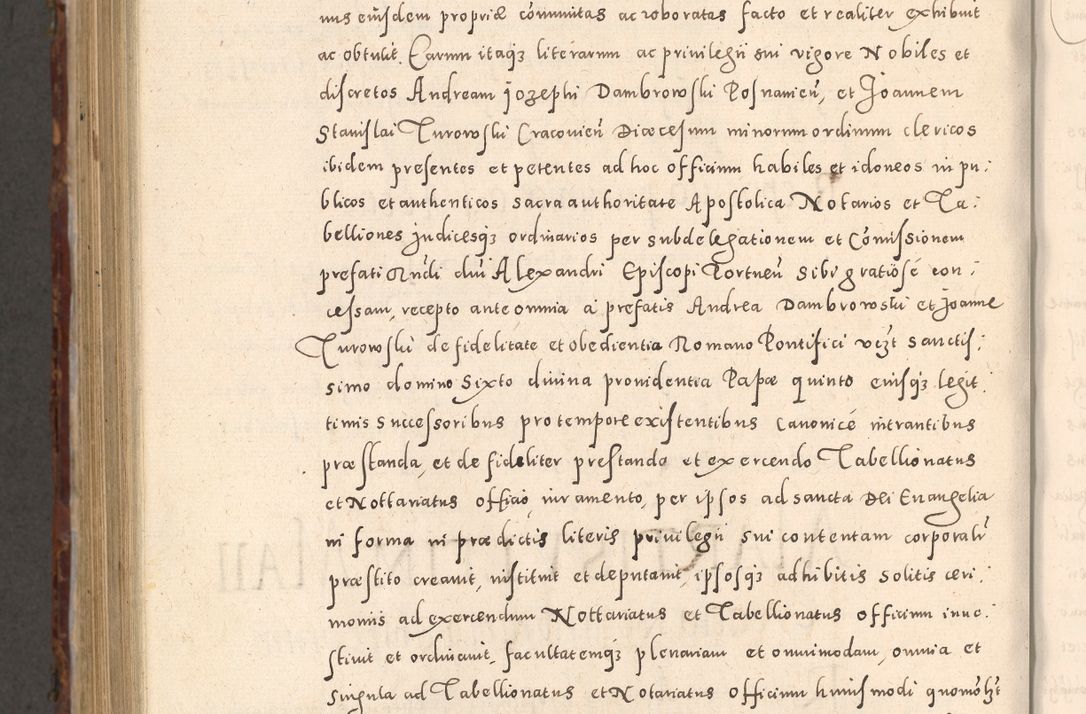 nus eiusdem propriæ communitas ac roboratas facto et realiter exhibuit
ac obtulit. Earum itaq3 literarum ac privilegii sui vigore Nobiles et
discretos Andream Jozephi Dambrowski Posnanien̄, et Joannem
Stanislai Turowski Cracovien̄ Diœcesum minorum ordinum clericos
ibidem presentes et petentes ad hoc officium habiles et idoneos in pu:
blicos et authenticos sacra authoritate Apostolica Notarios et Ta:
belliones Judicesq3 ordinarios per subdelegationem et Cōmissionem
prefati Rn̄di dn̄i Alexandri Episcopi Portuen̄ sibi gratiōsé con:
cessam, recepto ante omnia à prefatis Andrea Dambrowski et Joanne
Turowski de fidelitate et obedientia Romano Pontifici vizt sanctis:
simo domino Sixto divina providentia Papæ quinto eiusq3 legit:
timis successoribus pro tempore existentibus canonicé intrantibus
præstanda, et de fideliter prestando et exercendo Tabellionatus
et Nottariatus officio iuramento, per ipsos ad sancta Dei Evangelia
in forma in prædictis literis privilegii sui contentam corporalr̄
præstito creavit, instituit et deputavit, ipsosq3 adhibitis solitis ceri:
moniis ad exercendum Nottariatus et Tabellionatus officium inve:
stivit et ordinavit, facultatemq3 plenariam et omnimodam, omnia et
singula ad Tabellionatus et Notariatus officium huiusmodi quomōlzt